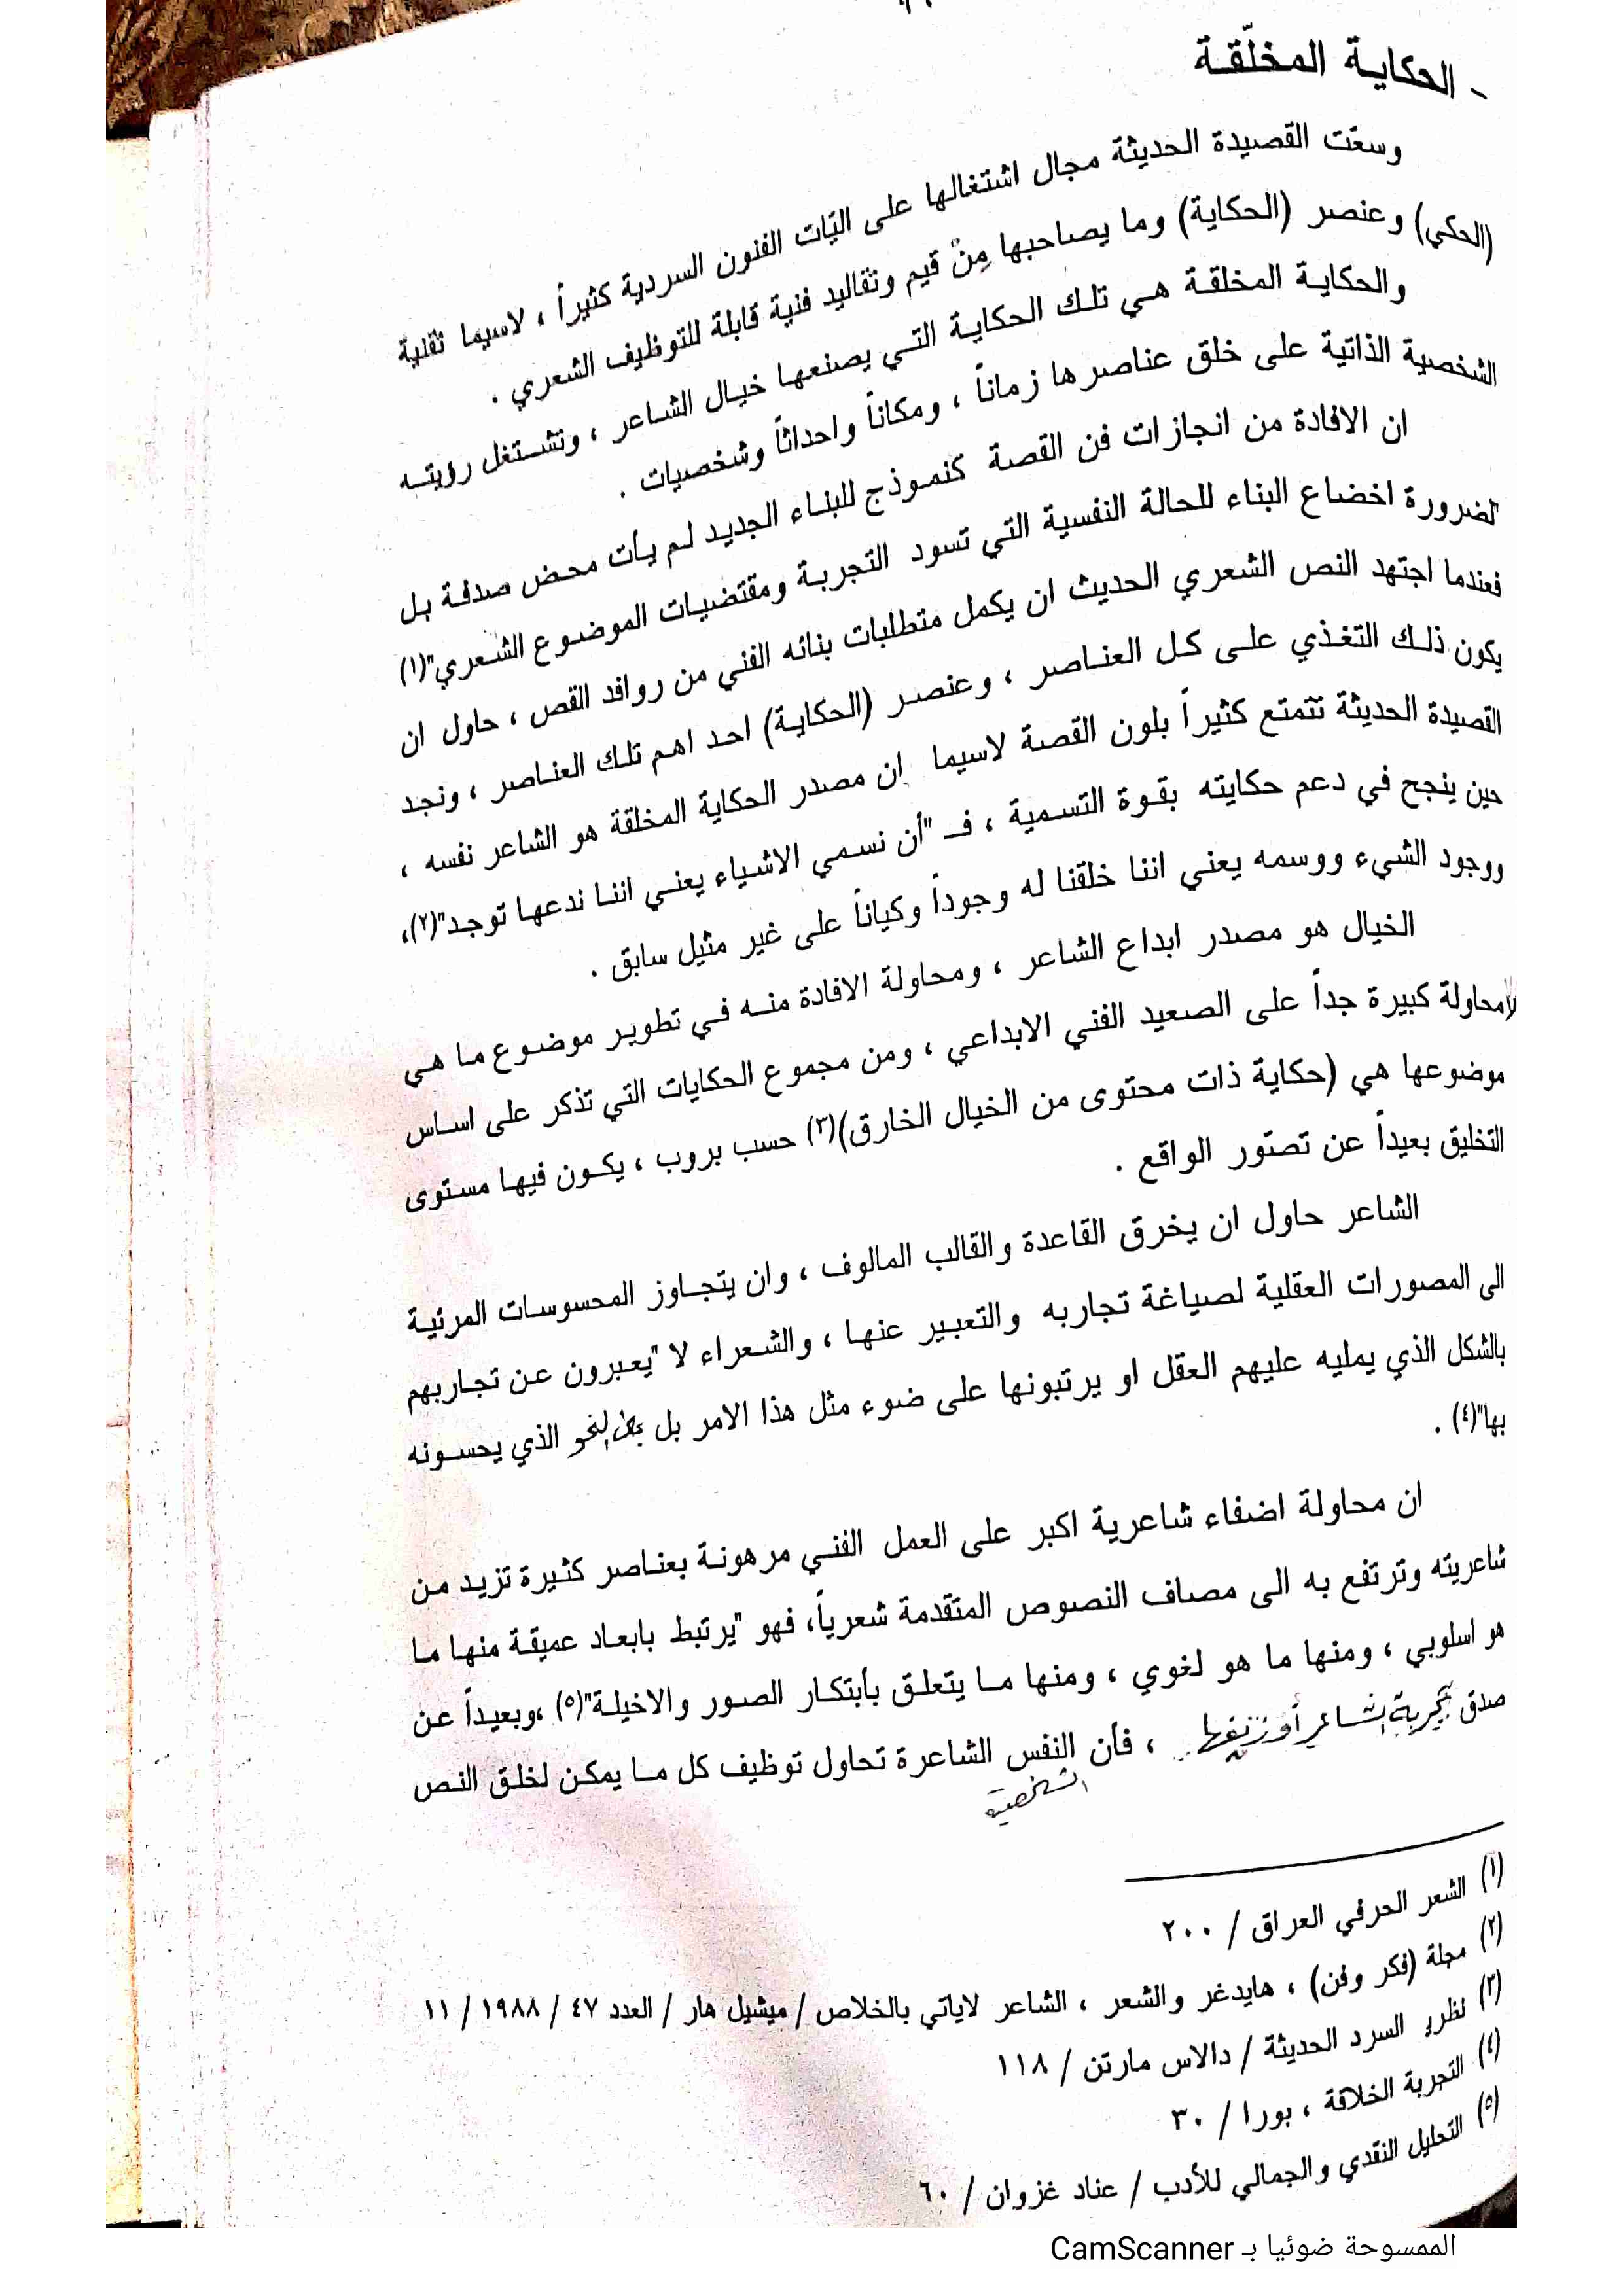 - الحكاية المخلّقة
وسعّت القصيدة الحديثة مجال اشتغالها على اليّات الفنون السردية كثيراً ، لاسيما تقنية
(الحكي) وعنصر (الحكاية) وما يصاحبها مِنْ قيم وتقاليد فنية قابلة للتوظيف الشعري .
والحكاية المخلقة هي تلك الحكاية التي يصنعها خيال الشاعر ، وتشتغل رؤيته
الشخصية الذاتية على خلق عناصرها زماناً ، ومكاناً واحداثاً وشخصيات .
ان الافادة من انجازات فن القصة كنموذج للبناء الجديد لم يأت محض صدفة بل
لضرورة اخضاع البناء للحالة النفسية التي تسود التجربة ومقتضيات الموضوع الشعري"(١)
فعندما اجتهد النص الشعري الحديث ان يكمل متطلبات بنائه الفني من روافد القص ، حاول ان
يكون ذلك التغذي على كل العناصر ، وعنصر (الحكاية) احد اهم تلك العناصر ، ونجد
القصيدة الحديثة تتمتع كثيراً بلون القصة لاسيما ان مصدر الحكاية المخلقة هو الشاعر نفسه ،
حين ينجح في دعم حكايته بقوة التسمية ، فـ "أن نسمي الاشياء يعني اننا ندعها توجد"(٢)،
ووجود الشيء ووسمه يعني اننا خلقنا له وجوداً وكياناً على غير مثيل سابق .
الخيال هو مصدر ابداع الشاعر ، ومحاولة الافادة منه في تطوير موضوع ما هي
محاولة كبيرة جداً على الصعيد الفني الابداعي ، ومن مجموع الحكايات التي تذكر على اساس
موضوعها هي (حكاية ذات محتوى من الخيال الخارق)(٣) حسب بروب ، يكون فيها مستوى
التخليق بعيداً عن تصتور الواقع .
الشاعر حاول ان يخرق القاعدة والقالب المالوف ، وان يتجاوز المحسوسات المرئية
الى المصورات العقلية لصياغة تجاربه والتعبير عنها ، والشعراء لا "يعبرون عن تجاربهم
بالشكل الذي يمليه عليهم العقل او يرتبونها على ضوء مثل هذا الامر بل النحو الذي يحسونه
بها"(٤) .
ان محاولة اضفاء شاعرية اكبر على العمل الفني مرهونة بعناصر كثيرة تزيد من
شاعريته وترتفع به الى مصاف النصوص المتقدمة شعرياً، فهو "يرتبط بابعاد عميقة منها ما
هو اسلوبي ، ومنها ما هو لغوي ، ومنها ما يتعلق بأبتكار الصور والاخيلة"(٥) ،وبعيداً عن
صدق تجربة الشاعر أو زيفها ، فأن النفس الشاعرة تحاول توظيف كل ما يمكن لخلق النص
الشخصية
(١) الشعر الحرفي العراق / ٢٠٠
(٢) مجلة (فكر وفن) ، هايدغر والشعر ، الشاعر لاياتي بالخلاص / ميشيل هار / العدد ٤٧ / ١٩٨٨ / ١١
(٣) السرد الحديثة / دالاس مارتن / ١١٨
(٤) التجربة الخلاقة ، بورا / ٣٠
(٥) التحليل النقدي والجمالي للأدب / عناد غزوان / ٦٠
الممسوحة ضوئيا بـ CamScanner